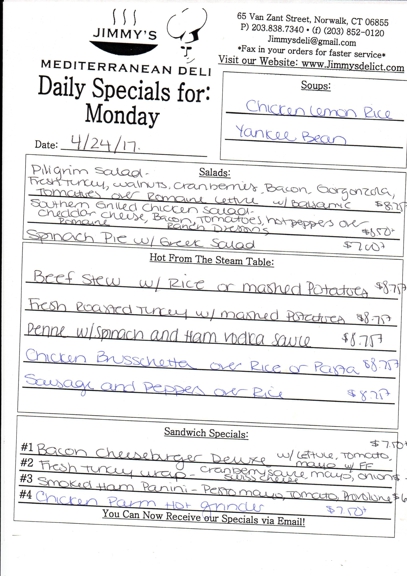 JIMMY'S
MEDITERRANEAN DELI
65 Van Zant Street, Norwalk, CT 06855
P) 203.838.7340 • (f) (203) 852-0120
Jimmysdeli@gmail.com
*Fax in your orders for faster service*
Visit our Website: www.Jimmysdelict.com
Daily Specials for:
Monday
Date: 4/24/17.
Soups:
Chicken Lemon Rice
Yankee Bean
Salads:
Pilgrim Salad-
Fresh Turkey, walnuts, cranberries, Bacon, Gorgonzola,
Tomatoes over Romaine Lettuce w/ Balsamic $8.75
Southern Grilled Chicken Salad-
cheddar cheese, Bacon, Tomatoes, hot peppers over
Romaine Ranch Dressing $8.50
Spinach Pie w/ Greek Salad $7.00
Hot From The Steam Table:
Beef Stew w/ Rice or mashed Potatoes $8.75
Fresh Roasted Turkey w/ mashed Potatoes $8.75
Penne w/ Spinach and Ham vodka sauce $8.75
Chicken Brusschetta over Rice or Pasta $8.75
Sausage and Peppers over Rice $8.75
Sandwich Specials:
$7.50
#1 Bacon Cheeseburger Deluxe w/ Lettuce, Tomato,
mayo w/ FF
#2 Fresh Turkey wrap - cranberry sauce, mayo, onions -
Swiss cheese
#3 Smoked Ham Panini - Pesto mayo, Tomato, Provolone $6
#4 Chicken Parm Hot Grinder $7.50
You Can Now Receive our Specials via Email!